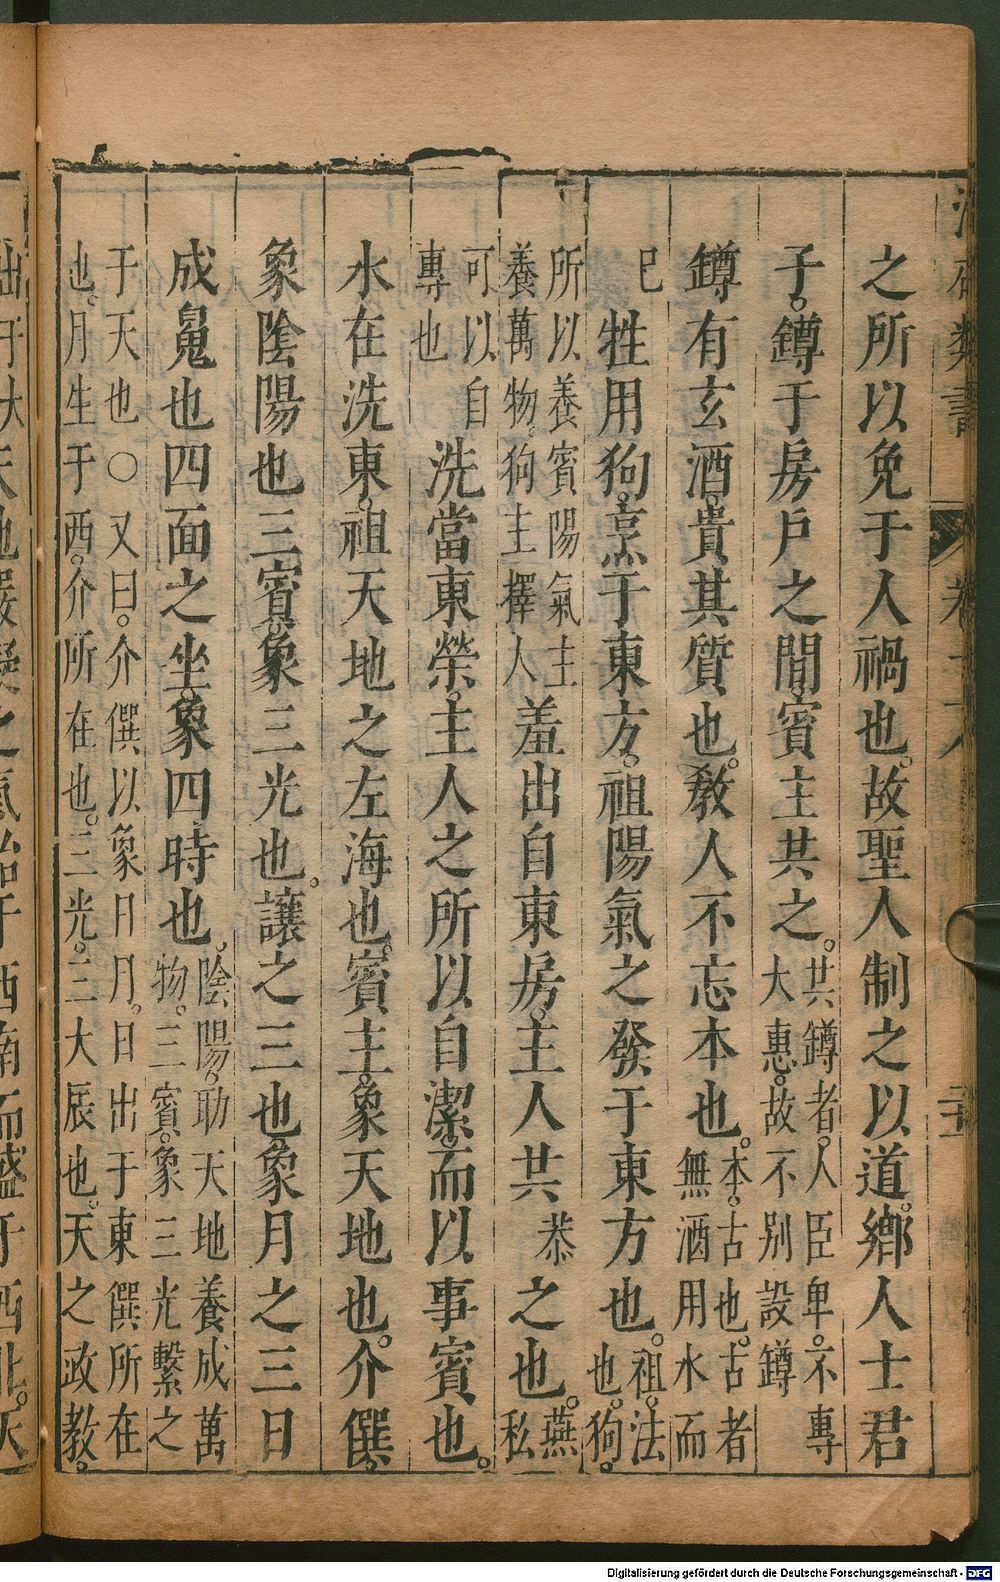 類書
卷
之所以免于人禍也。故聖人制之以道。鄉人士君
子。鐏于房戶之間。賓主共之。共鐏者。人臣卑。不專
大惠。故不別設鐏
鐏有玄酒。貴其質也。教人不忘本也。本。古也。古者
無酒用水而
已
牲用狗。烹于東方。祖陽氣之發于東方也。祖。法
也。狗。
所以養賓陽氣主
養萬物。狗主擇人
羞出自東房。主人共恭之也。燕
私
可以自
專也
洗當東榮。主人之所以自潔。而以事賓也。
水在洗東。祖天地之左海也。賓主。象天地也。介僎。
象陰陽也三賓。象三光也。讓之三也。象月之三日
成魄也四面之坐。象四時也。陰陽。助天地養成萬
物。三賓。象三光繫之
于天也○又曰。介僎以象日月。日出于東僎所在
也。月生于西。介所在也。三光。三大辰也。天之政教。
天地嚴凝之氣始于西南而盛于西北。天
Digitalisierung gefördert durch die Deutsche Forschungsgemeinschaft - DFG